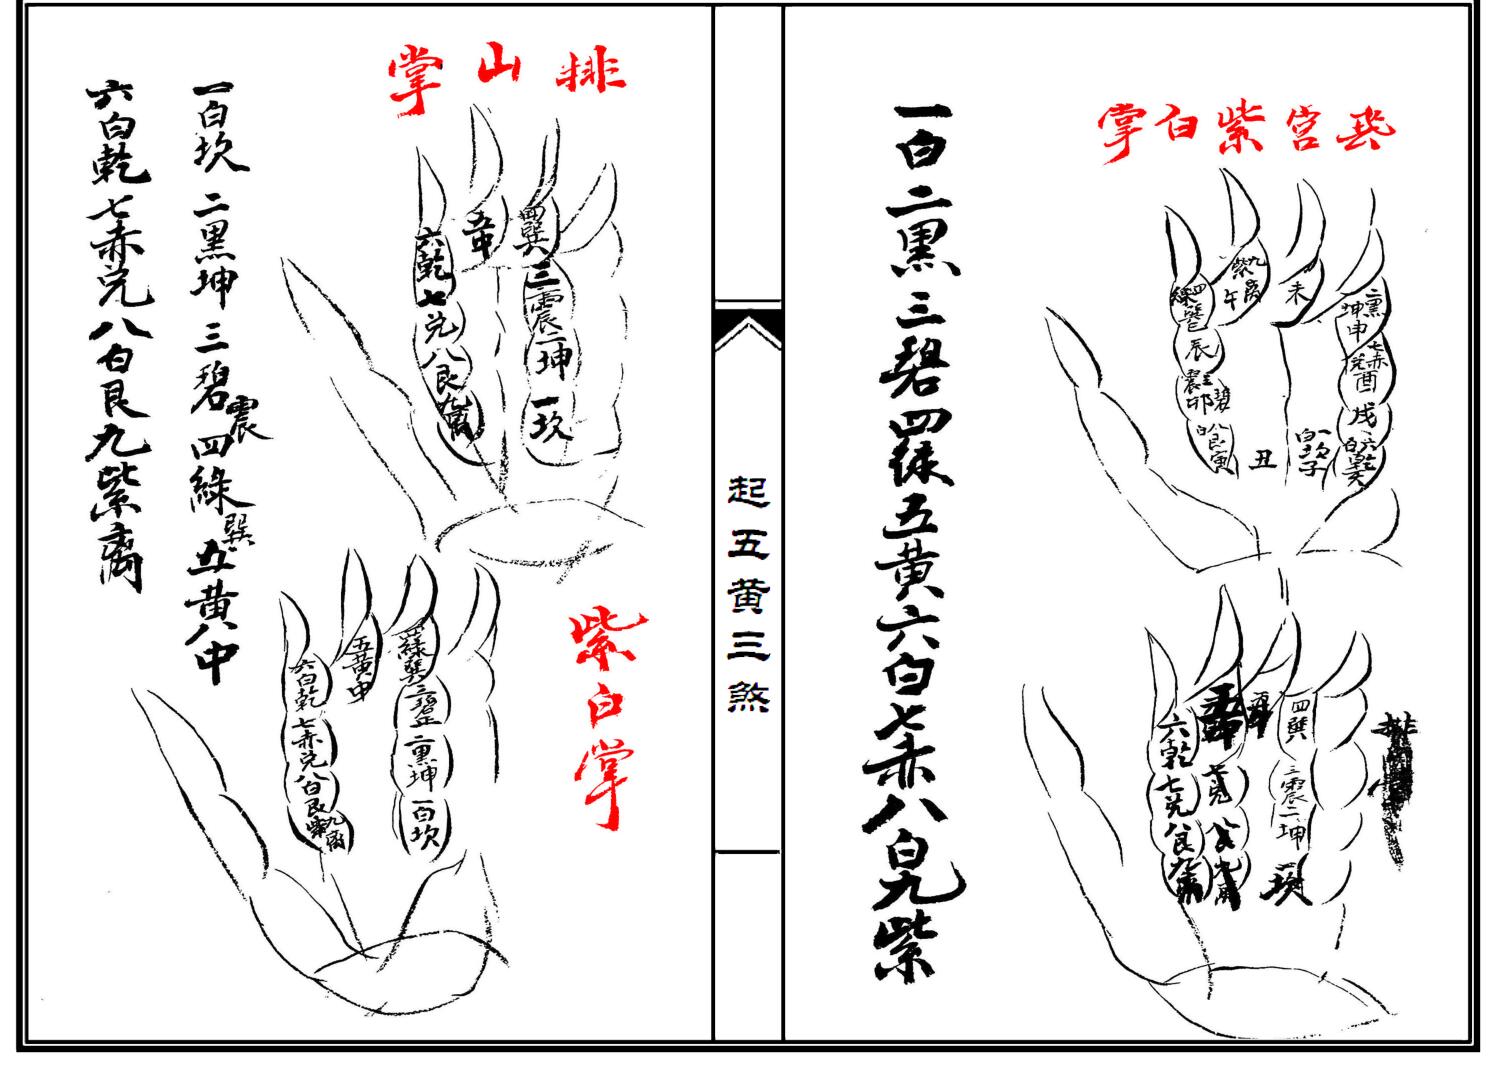 兴宫紫白掌
九紫離午
未
二黑坤申
四綠巽巳
辰
三碧震卯
七赤兌酉
戌
八白艮寅
丑
一白坎子
六白乾亥
四巽
六乾
七兌
三震二坤
八艮
九離
一坎
排
一白二黑三碧四綠五黄六白七赤八白九紫
起五黄三煞
排山掌
四巽
五中
六乾
三震二坤
七兌
八艮
一坎
九離
一白坎二黑坤三碧震四綠巽五黄八中
六白乾七赤兌八白艮九紫离
紫白掌
四綠巽
五黄中
六白乾
三碧
二黑坤
七赤兌
一白坎
八白艮
九紫離